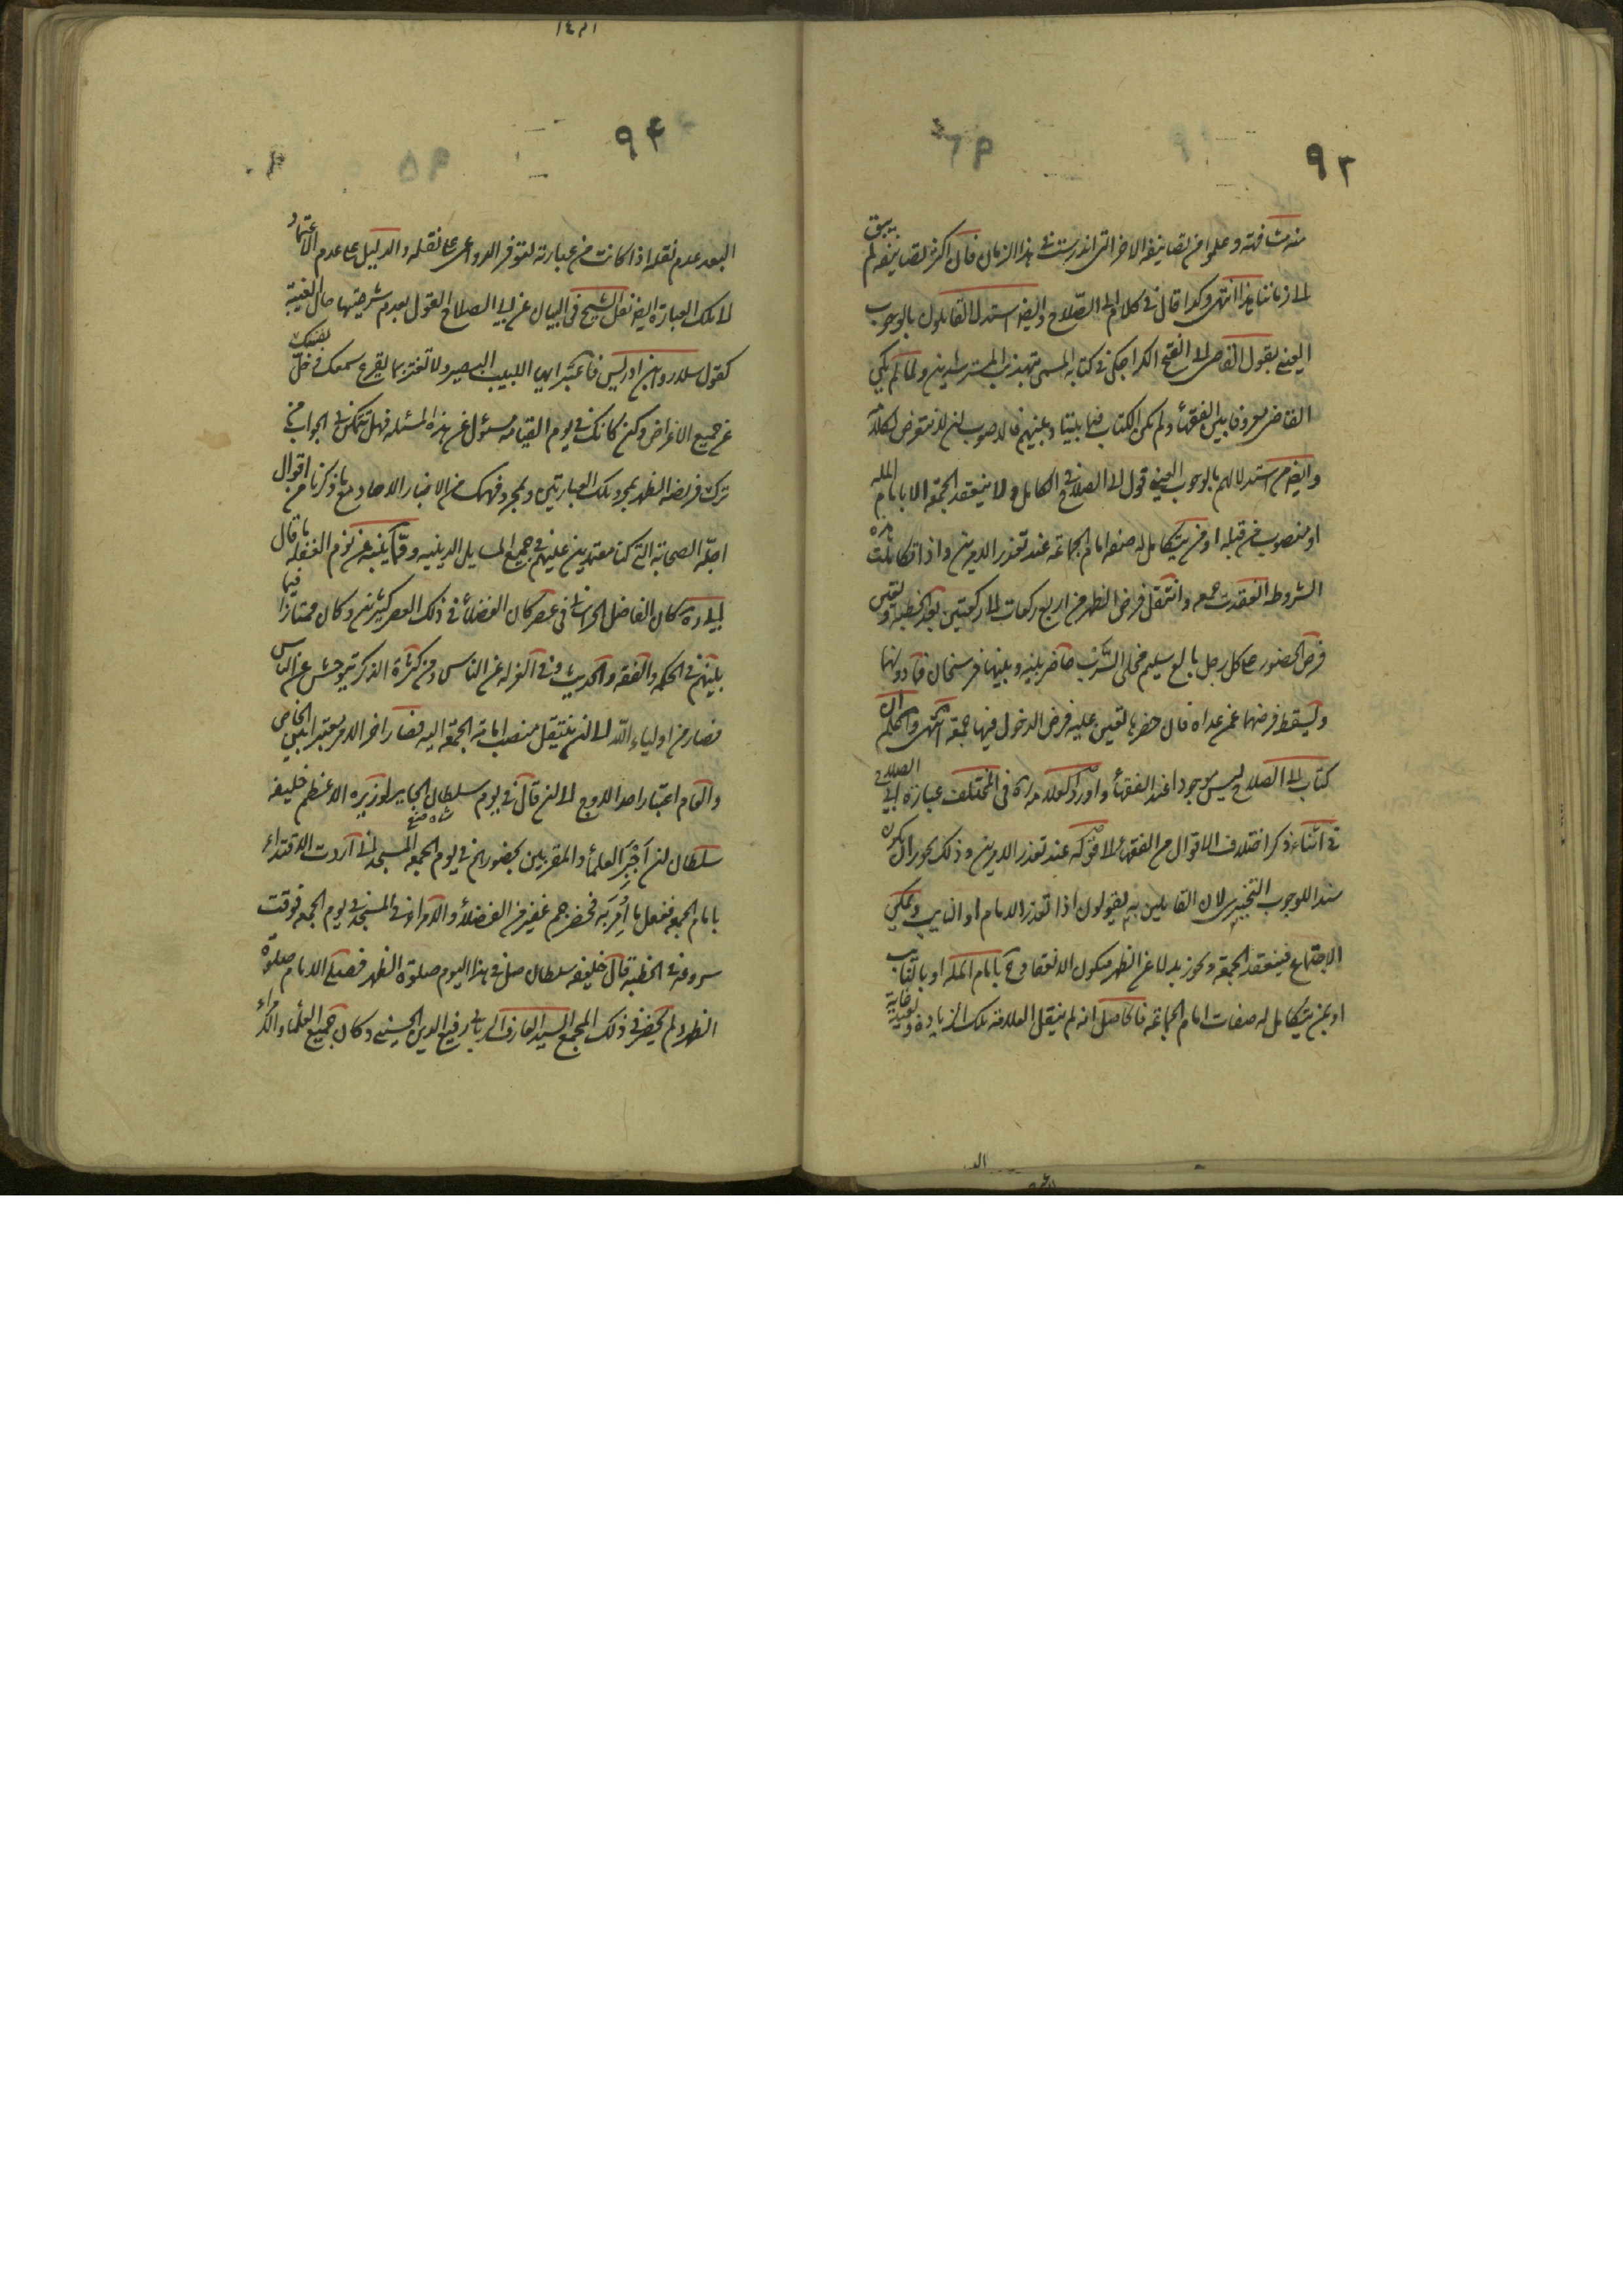 ٩٣
منه مشافهة وعلموا من تصانيفه الاخر التى اندرست فى هذا الزمان فان اكثر تصانيفه لم يبق
الى زماننا هذا انتهى وكذا قال فى كلام ابى الصلاح وايضا استدل القائلون بالوجوب
العينى بقول القاضى ابى الفتح الكراجكى فى كتابه المسمى بتهذيب المسترشدين ولما لم يكن
القاضى معروفا بين الفقهاء ولم يكن الكتاب فيما بيننا وبينهم فالاصوب ان لا نتعرض لكلامه
وايضا من استدلالهم بالوجوب العينى قول ابى الصلاح فى الكامل ولا ينعقد الجمعة الا بامام الملة
او منصوب من قبله او من يتكامل له صفة امام الجماعة عند تعذر الامرين واذا تكاملت هذه
الشروط انعقدت جمعه وانتقل فرض الظهر من اربع ركعات الى ركعتين بعد الخطبة وتعين
فرض الحضور على كل رجل بالغ سليم مخلى السرب حاضر بينه وبينها فرسخان فما دونها
ويسقط فرضها عمن عداه فان حضرها تعين عليه فرض الدخول فيها جمعة انتهى واعلم ان
كتاب ابى الصلاح ليس موجودا عند الفقهاء واورد العلامة ره فى المختلف عبارة ابى الصلاح
فى اثناء ذكر اختلاف الاقوال من الفقهاء عند تعذر الامرين وذلك يجوز ان يكون
سندا للوجوب التخييرى لان القايلين به يقولون اذا تعذر الامام او النايب ويمكن
الاجتماع فينعقد الجمعة ويجوز بدلا عن الظهر فيكون الانعقاد ح بامام الملة او بالنايب
او بمن يتكامل له صفات امام الجماعة فالحاصل انه لم ينقل العلامة تلك الزيادة
٩٤
البعد عدم نقله اذا كانت من عبارته لتوفر الدواعى على نقله والدليل على عدم الاعتماد
لا تلك العبارة ايضا نقل الشيخ فى البيان عن ابى الصلاح القول بعدم شرعيتها حال الغيبة
كقول سلار وابن ادريس فاعتبر ايها اللبيب البصير ولا تغتر بما يقرع سمعك وخل نفسك
عن جميع الاغراض وكن كانك فى يوم القيامه مسئول عن هذه المسئله فهل تتمكن فى الجواب من
ترك فريضه الظهر بمجرد تلك العبارتين وبمجرد فهمك من الاخبار الاحاد مع ما ذكرنا من اقوال
اجله الصحابه التى كنا معتمدين عليهم فى جميع المسايل الدينيه ومما ينبه عن نوم الغفله ما قال
كان الفاضل الخراسانى فى عصر كان الفضلاء فى ذلك العصر كثيرين وكان ممتازا فيما
بينهم فى الحكمه والفقه والحديث وفى العزله عن الناس ومن كثرة الذكر يتوحش عن الناس
فصار من اولياء الله الى ان ينتقل منصب امامة الجمعة اليه فصار اخر الامر معتبرا بين الخاص
والعام اعتبارا حد الاوج الى ان قال فى يوم سلطان الجابر لوزيره الاعظم خليفه
سلطان ان اخبر العلماء والمقربين بحضورهم فى يوم الجمعه المسجد شاه صفى انى اردت الاقتداء
بامام الجمعه ففعل ما امر به فحضر جم غفير من الفضلاء والامراء فى المسجد فى يوم الجمعه فوقت
شروعه فى الخطبة قال خليفه سلطان صل فى هذا اليوم صلوة الظهر فصلى الامام صلوة
الظهر ولم يحضر فى ذلك المجمع السيد العارف الربانى رفيع الدين الحسينى وكان جميع العلماء والامراء